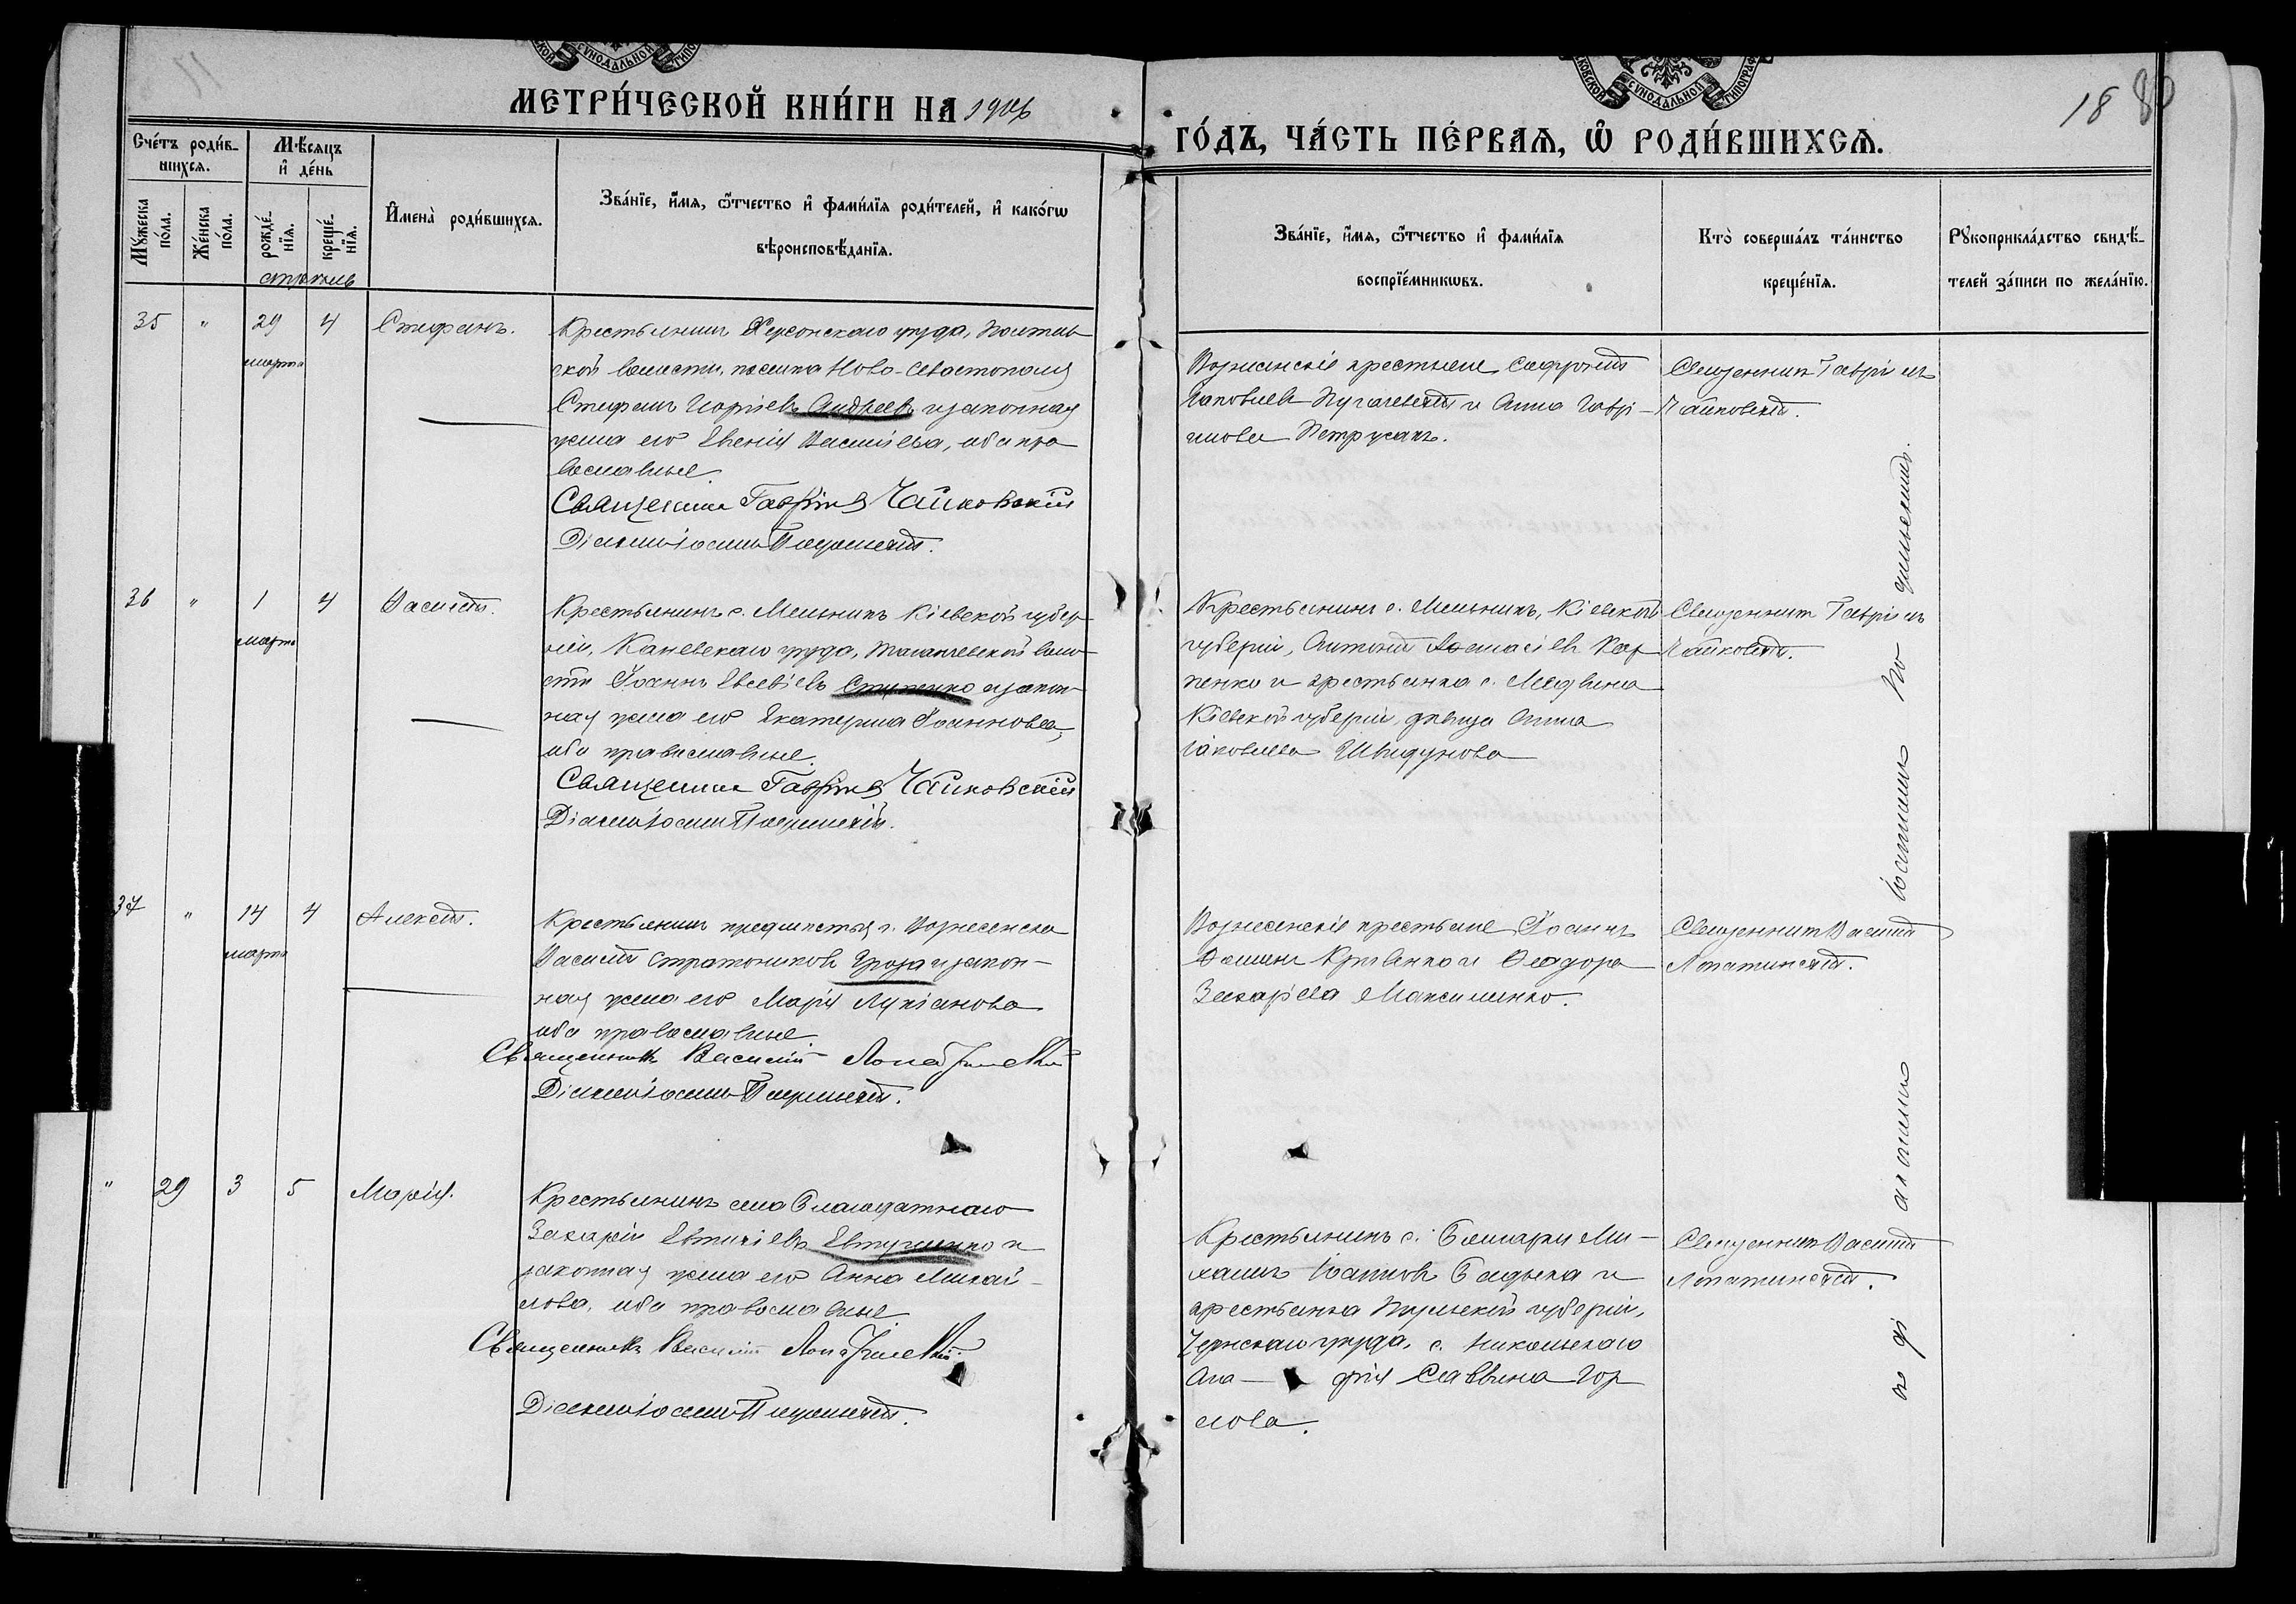 МЕТРИ́ЧЕСКОЙ КНИ́ГИ НА 1916
ГО́ДЪ, ЧА́СТЬ ПЕ́РВАѦ, Ѽ РОДИ́ВШИХСѦ.
18
Сче́тъ роди́в-
шихсѧ.
Мѣ́сѧцъ
и҆ де́нь
Мꙋжеска
по́ла.
Же́нска
по́ла.
рожде́-
нїѧ.
креще́-
нїѧ.
И҆мена̀ роди́вшихсѧ.
Зва́нїе, и҆́мѧ, ѻ҆́тчество и҆ фами́лїѧ роди́телей, и҆ како́гѡ
вѣроисповѣ́данїѧ.
Зва́нїе, и҆́мѧ, ѻ҆́тчество и҆ фами́лїѧ
воспрїе́мникѡвъ.
Кто̀ соверша́лъ та́инство
креще́нїѧ.
Рꙋкоприкла́дство свидѣ́-
телей за́писи по жела́нїю.
апрѣль
35 " 29 4 Стефанъ.
марта
Крестьянинъ Херсонскаго уѣзда,
ской волости, поселка Ново-Севастополя
Стефанъ Георгіевъ Андреевъ и законная
жена его Евгенія Васильева, оба пра
вославные.
Священникъ Гавріилъ Чайковскій
Діаконъ Іоаннъ
Вознесенскіе крестьяне Софроній
Іаковлевъ Пугачевскій и Анна Гаврі-
илова Петрусакъ.
Священникъ Гавріилъ
Чайковскій.
36 " 1 4 Василій.
марта
Крестьянинъ с. Мельникъ Кіевской губер-
ніи, Каневскаго уѣзда, Таганчевской воло-
сти Іоаннъ Евсевіевъ Ступенко и закон-
ная жена его Екатерина Іоаннова,
оба православные.
Священникъ Гавріилъ Чайковскій
Діаконъ Іоаннъ
Крестьянинъ с. Мельникъ, Кіевской
губерніи, Антоній Аѳанасіевъ Кар
пенко и крестьянка с. Медвина
Кіевской губерніи, дѣвица Анна
Іаковлева Швидунова
Священникъ Гавріилъ
Чайковскій.
37 " 14 4 Алексій.
марта
Крестьянинъ предмѣстья г. Вознесенска
Василій Стратониковъ Гроза и закон-
ная жена его Марія Лукіанова
оба православные.
Священникъ Василій Лопатинскій
Діаконъ Іоаннъ
Вознесенскіе крестьяне Іоаннъ
Кривенко и Ѳеодора
Захаріева Максименко.
Священникъ Василій
Лопатинскій.
" 29 3 5 Марія.
Крестьянинъ села Благодатнаго
Захарій Евтихіевъ Евтушенко и
законная жена его Анна Михай-
лова, оба православные.
Священникъ Василій Лопатинскій.
Діаконъ Іоаннъ
Крестьянинъ с. Ми-
хаилъ Іоанновъ и
крестьянка Тульской губерніи,
Чернскаго уѣзда, с. Никольскаго
Ага- фія Саввина Гор
елова.
Священникъ Василій
Лопатинскій.